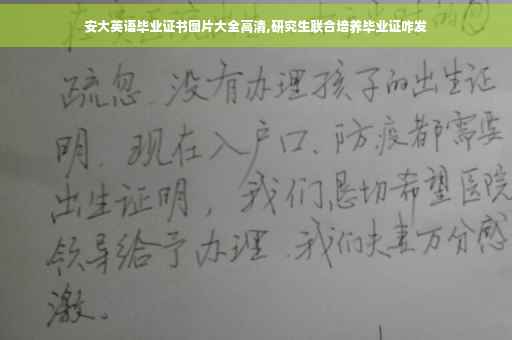 安大英语毕业证书图片大全高清,研究生联合培养毕业证咋发
疏忽、没有办理孩子的出生证
明、现在入户口、防疫都需要
出生证明，我们恳切希望医院
领导给予办理、我们夫妻万分感
激。